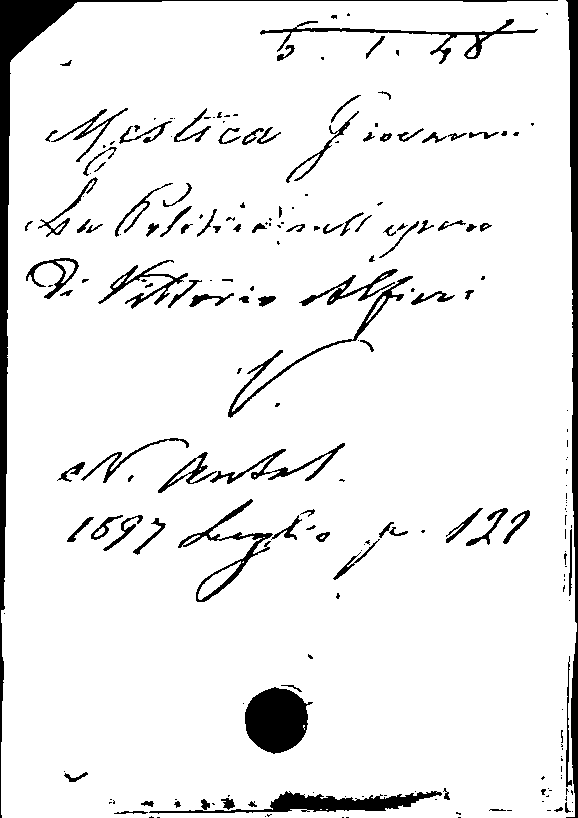 5. 1. 48
Mestica Giovanni
La Politica nell' opera
Di Vittorio Alfieri
V.
N. Antol.
1897 Luglio p. 121